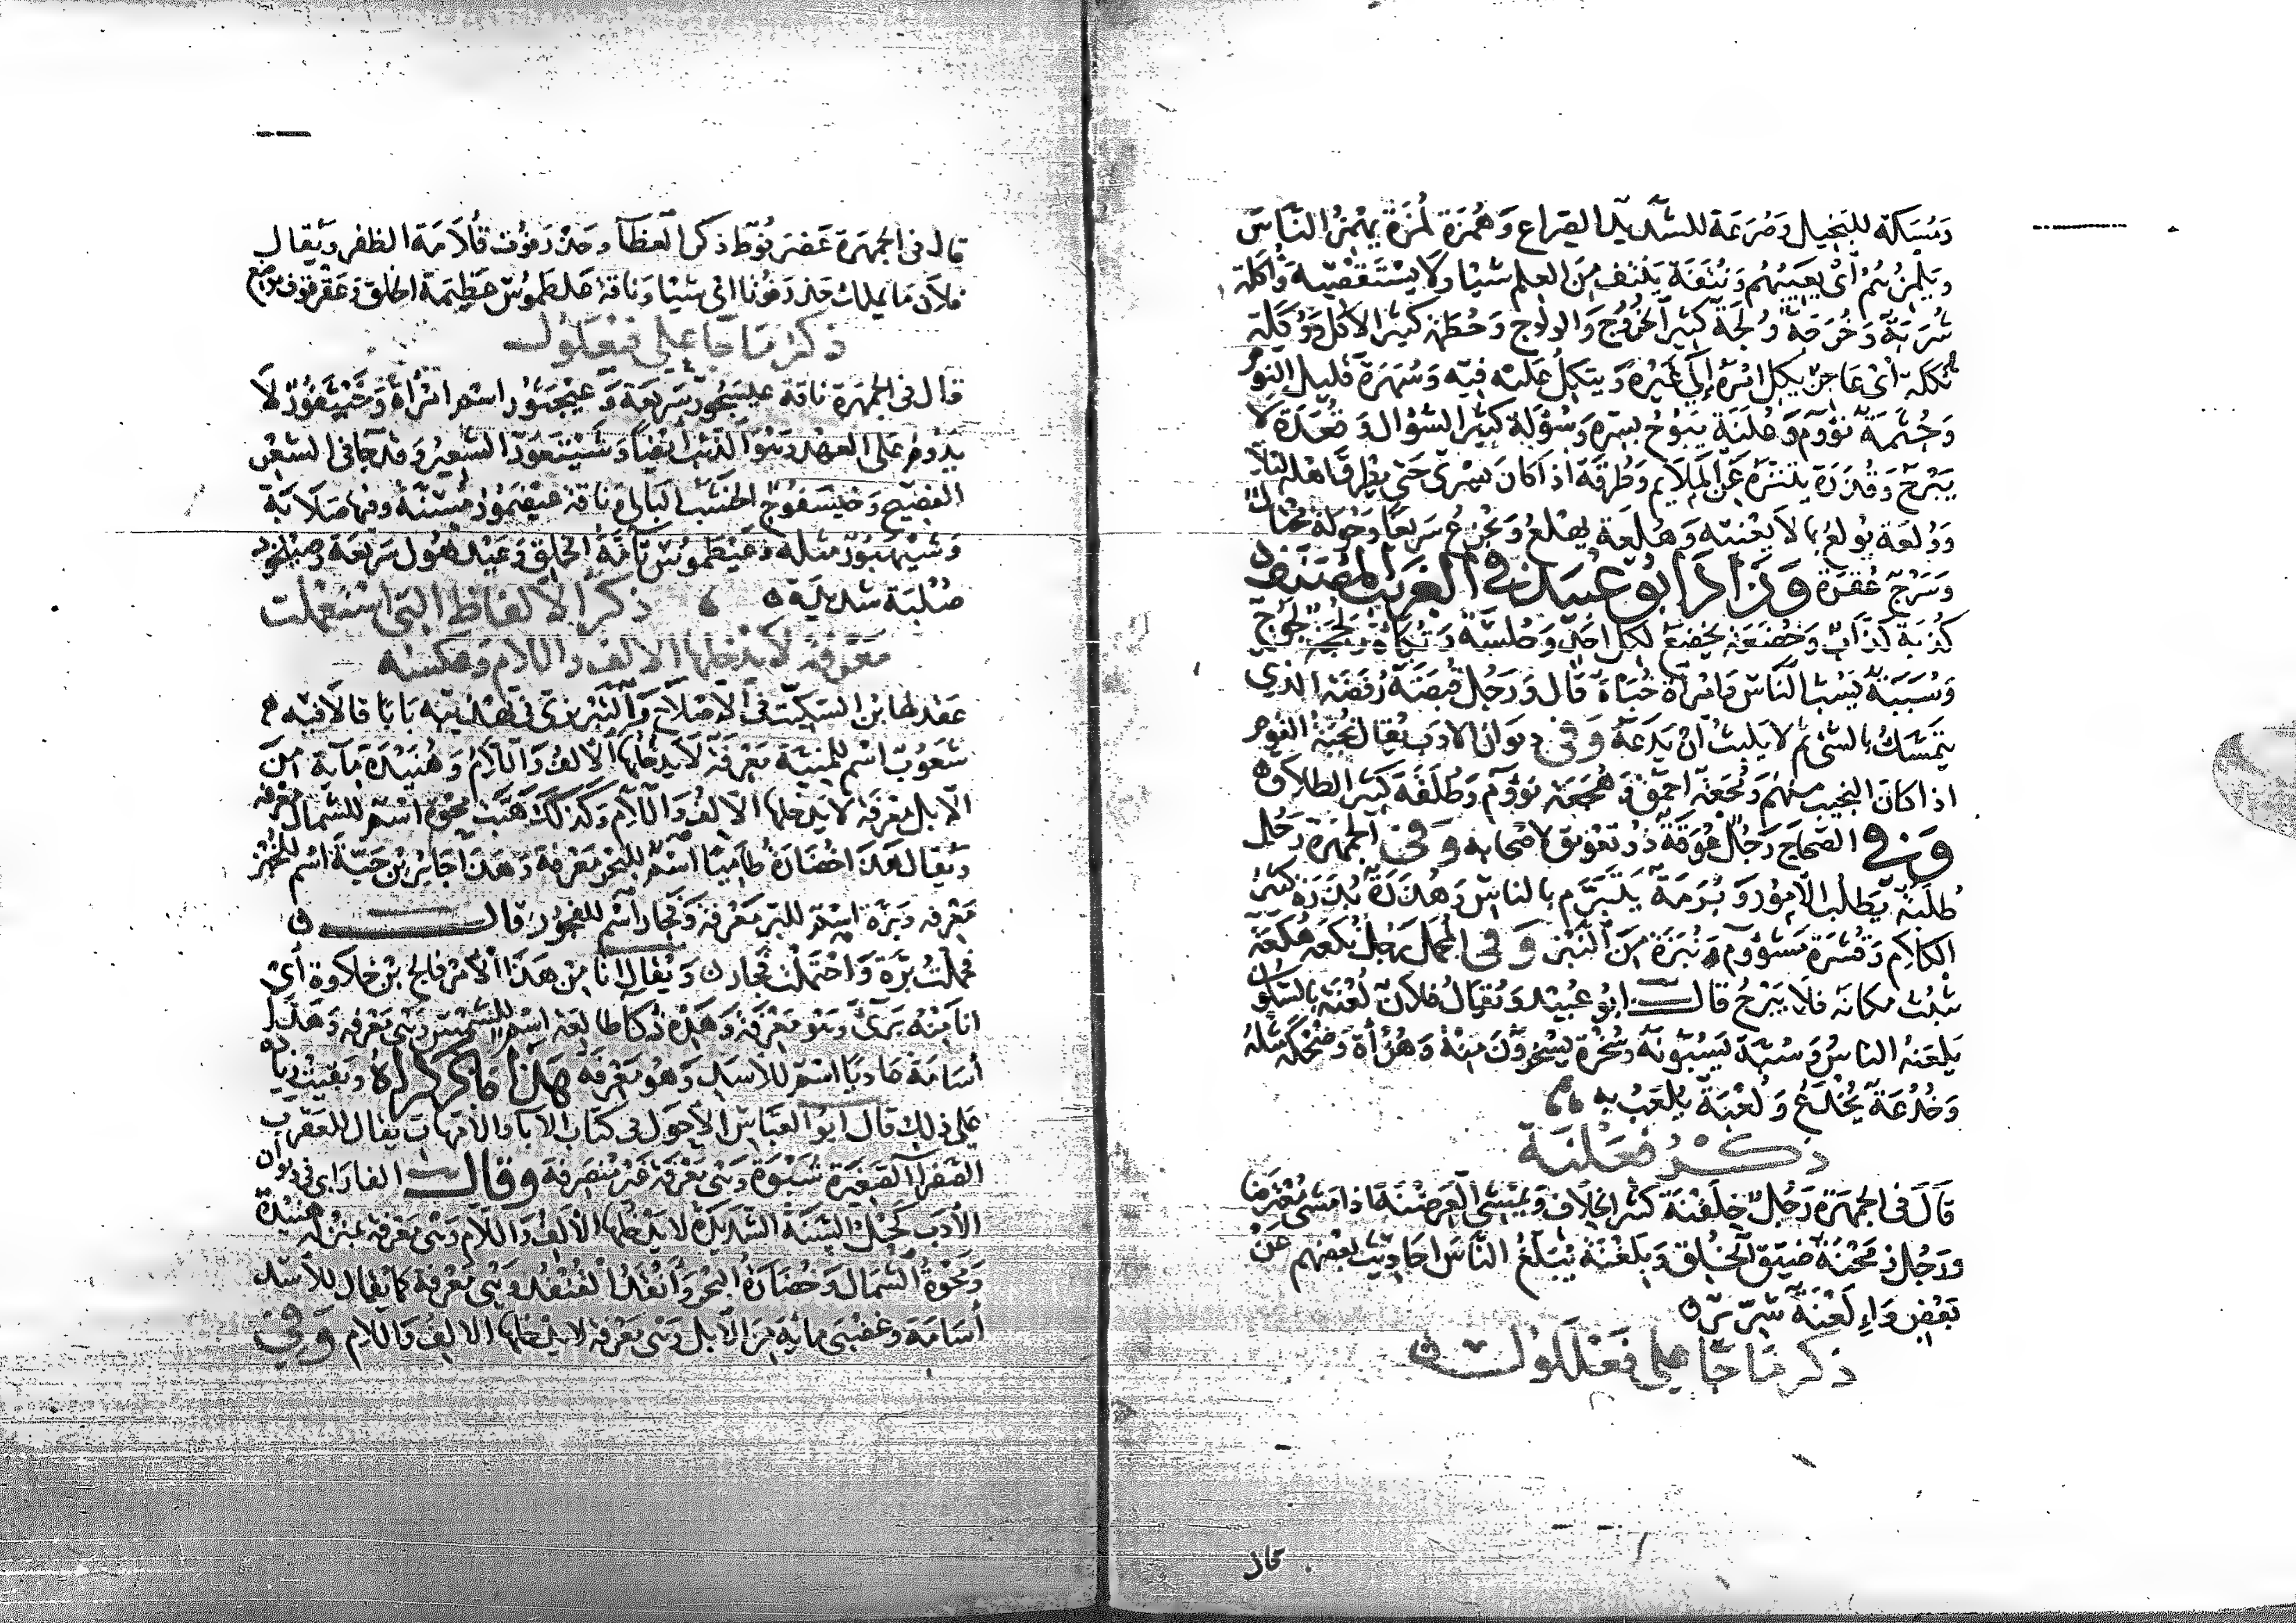 ومسكة للبخيل وصرعة للشديد الصراع وهمزة لمزة يهمز الناس
ويلمزهم أي يعيبهم ونتفة ينتف من العلم شيئا ولا يستقصيه وأكلة
شربة وخرجة ولجة كثير الخروج والولاج وحطمة كثير الاكل ووكلة
تكلة أي عاجز يكل امره إلى غيره ويتكل عليه فيه وسهرة قليل النوم
وجثمة نؤوم وعلنة يبوح بسره وسؤلة كثير السؤال وقعدة لا
يبرح وقذرة يتنزه عن الملايم وطرقة اذا كان يسرى حتى يطرق اهله ليلا
وولعة يولع بما لا يعنيه وهلعة يهلع ويجزع سريعا وحولة محتال
وسرج عقرة وزاد ابو عبيد في الغريب المصنف
كذبة كذاب وخضعة يخضع لكل احد وجلسة وتكأة ولججة لجوج
وسببة يسب الناس وامرأة خبأة قال ورجل قبضة رفضة الذي
يتمسك بالشئ ثم لا يلبث أن يدعه وفي ديوان الادب يقال نجبة القوم
اذا كان النجيب منهم ومجعة احمق وهجعة نؤوم وطلقة كثير الطلاق
وفي الصحاح رجل عوقة ذو تعويق لاصحابه وفي الجمهرة رجل
طلبة يطلب الامور وبرمة يتبرم بالناس وهذرة بذرة كثير
الكلام وقشرة مشؤوم ونبزة من النبز وفي المجمل رجل نكعة هكعة
يثبت مكانه فلا يبرح قال ابو عبيد ويقال فلان لعنة بالسكون
يلعنه الناس وسبة يسبونه وسخرة يسخرون منه وهزأة وضحكة مثله
وخدعة يخدع ولعبة يلعب به
ذكر فعلنة
قال في الجمهرة رجل خلفنة كثير الخلاف ويمشي العرضنة اذا مشى معترضا
ورجل زمحنة ضيق الخلق وبلغنة يبلغ الناس احاديث بعضهم عن
بعض وإلعنة شرير
ذكر ما جا على فعللول
قال
قال في الجمهرة عضرفوط ذكر العظا وحذرفوت قلامة الظفر ويقال
فلان ما يملك حذرفوتا اي شيئا وناقة علطموس عظيمة الخلق وعقرقوف موضع
ذكر ما جا على فيعلول
قال في الجمهرة ناقة عيسجور سريعة وعيجلوف اسم امرأة وخيتعور لا
يدوم على العهد وهو الذئب ايضا وشيتعور الشعير وقد جا في الشعر
الفصيح وخيسفوج الخشب البالي وناقة عيضموز مسنة وفيها صلابة
وشيهبور مثله وعيطموس تامة الخلق وعيدهول سريعة وصيلخود
صلبة شديدة ذكر الالفاظ التي استعملت
معرفة لا يدخلها الالف واللام وعكسه
عقد لها ابن السكيت في الاصلاح والتبريزي في تهذيبه بابا قالا فيه
شعوب اسم للمنية معرفة لا يدخلها الالف واللام وهنيدة ماية من
الابل معرفة لا يدخلها الالف واللام وكذلك هبت محوة اسم للشمال معرفة
ويقال هذا خضارة طاميا اسم للبحر معرفة وهذا جابر بن حبة اسم للخبز
معرفة وبرة اسم للبر معرفة وفجار اسم للفجور قال
فحملت برة واحتملت فجار ويقال انا من هذا الأمر فالج بن خلاوة أي
انا منه برئ وهو معرفة وهذه ذكا طالعة اسم للشمس وهي معرفة وهذا
أسامة عاديا اسم للاسد وهو معرفة هذا ما ذكراه وبقيت زيادة
على ذلك قال ابو العباس الأحول في كتاب الآبا والامهات يقال للعقرب
الصفرا الصغيرة شبوة وهي معرفة غير منصرفة وقال الفارابي في ديوان
الأدب كحل السنة الشديدة لا يدخلها الالف واللام وهي معرفة بمنزلة هنيدة
ومحوة الشمال وخضارة البحر وأنقد القنفد وهي معرفة كما يقال للاسد
أسامة وغضبى ماية من الابل وهي معرفة لا يدخلها الالف واللام وفي